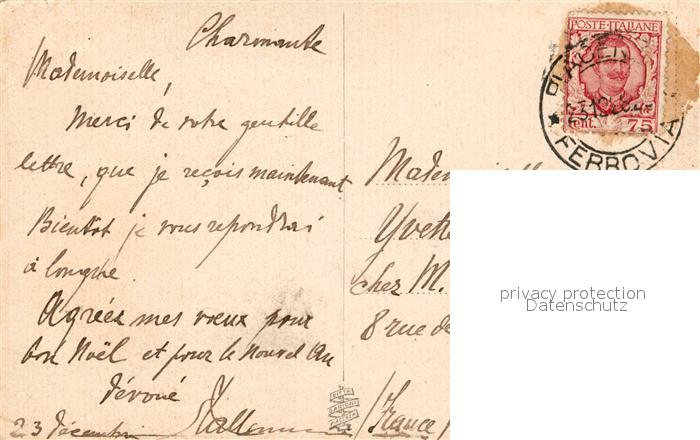 Charmante
Mademoiselle,
Merci de votre gentille
lettre, que je reçois maintenant
Bientôt je vous repondrai
à longue.
Agréez mes vœux pour
bon Noël et pour le Nouvel An
dévoué
23 décembre
POSTE ITALIANE
Cent. 75
PIACENZA
FERROVIA
Yvette
chez M.
8 rue de
/France/
privacy protection
Datenschutz